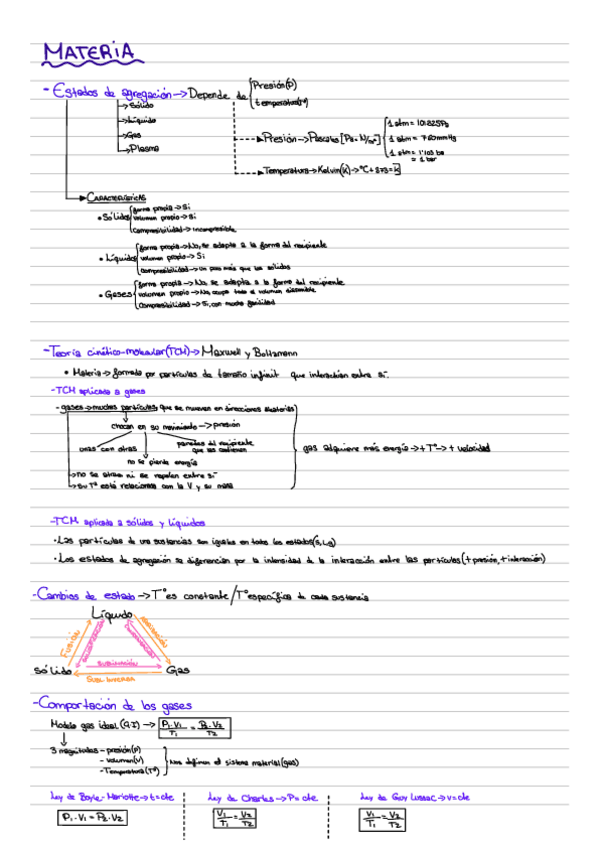 MATERIA
- Estados de agregación → Depende de
Presión(P)
temperatura(Tº)
→ Sólido
→ Líquido
→ Gas
→ Plasma
Presión → Pascales [Pa = N/m²]
1 atm = 101325Pa
1 atm = 760mmHg
1 atm =
= 1 bar
Temperatura → Kelvin(K) → ºC + 273 = K
CARACTERÍSTICAS
• Sólidos
forma propia → Si
volumen propio → Si
Compresibilidad → Incompresible
• Líquidos
forma propia → No, se adapta a la forma del recipiente
volumen propio → Si
compresibilidad → Un poco más que los sólidos
• Gases
forma propia → No, se adapta a la forma del recipiente
volumen propio → No, ocupa todo el volumen disponible
Compresibilidad → Si, con mucha facilidad
- Teoría cinético-molecular(TCM) → Maxwell y Boltzmann
• Materia → formada por partículas de tamaño que interactúan entre sí.
- TCM aplicada a gases
- gases → muchas partículas, que se mueven en direcciones aleatorias
chocan en su movimiento → presión
unas con otras
paredes del recipiente
que las contienen
no se pierde energía
→ no se atraen ni se repelen entre sí
→ su Tº está relacionada con la V y su masa
gas adquiere más energía → + Tº → + velocidad
- TCM aplicada a sólidos y líquidos
• Las partículas de una sustancias son iguales en todos los estados(S,L,g)
• Los estados de agregación se diferencian por la intensidad de la interacción entre las partículas(+presión,+interacción)
- Cambios de estado → Tº es constante / Tº específica de cada sustancia
Líquido
FUSIÓN
SOLIDIFICACIÓN
VAPORIZACIÓN
CONDENSACIÓN
SUBLIMACIÓN
Sólido
Gas
SUBL. INVERSA
- Comportación de los gases
Modelo gas ideal (G.I) → P₁·V₁/T₁ = P₂·V₂/T₂
3 magnitudes - presión(P)
- volumen(V)
- Temperatura(Tº)
Nos definen el sistema material(gas)
Ley de Boyle-Mariotte → t=cte
P₁·V₁ = P₂·V₂
Ley de Charles → P=cte
V₁/T₁ = V₂/T₂
Ley de Gay Lussac → V=cte
V₁/T₁ = V₂/T₂